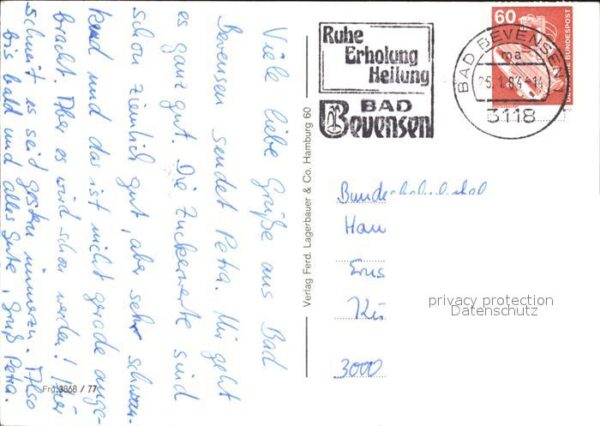 Viele liebe Grüße aus Bad
Bevensen sendet Petra. Mir geht
es ganz gut. Die Zuckerwerte sind
schon ziemlich gut, aber sehr schwan-
kend und das ist nicht gerade ange-
bracht. Aber es wird schon werden! Hier
schneit es seit gestern immerzu. Also
bis bald und alles Gute, Gruß Petra.
Frd. 3868 / 77
Verlag Ferd. Lagerbauer & Co. Hamburg 60
Ruhe
Erholung
Heilung
BAD
Bevensen
BAD BEVENSEN
ma
25.1.84-14
3118
60
DEUTSCHE BUNDESPOST
Han
3000
privacy protection
Datenschutz